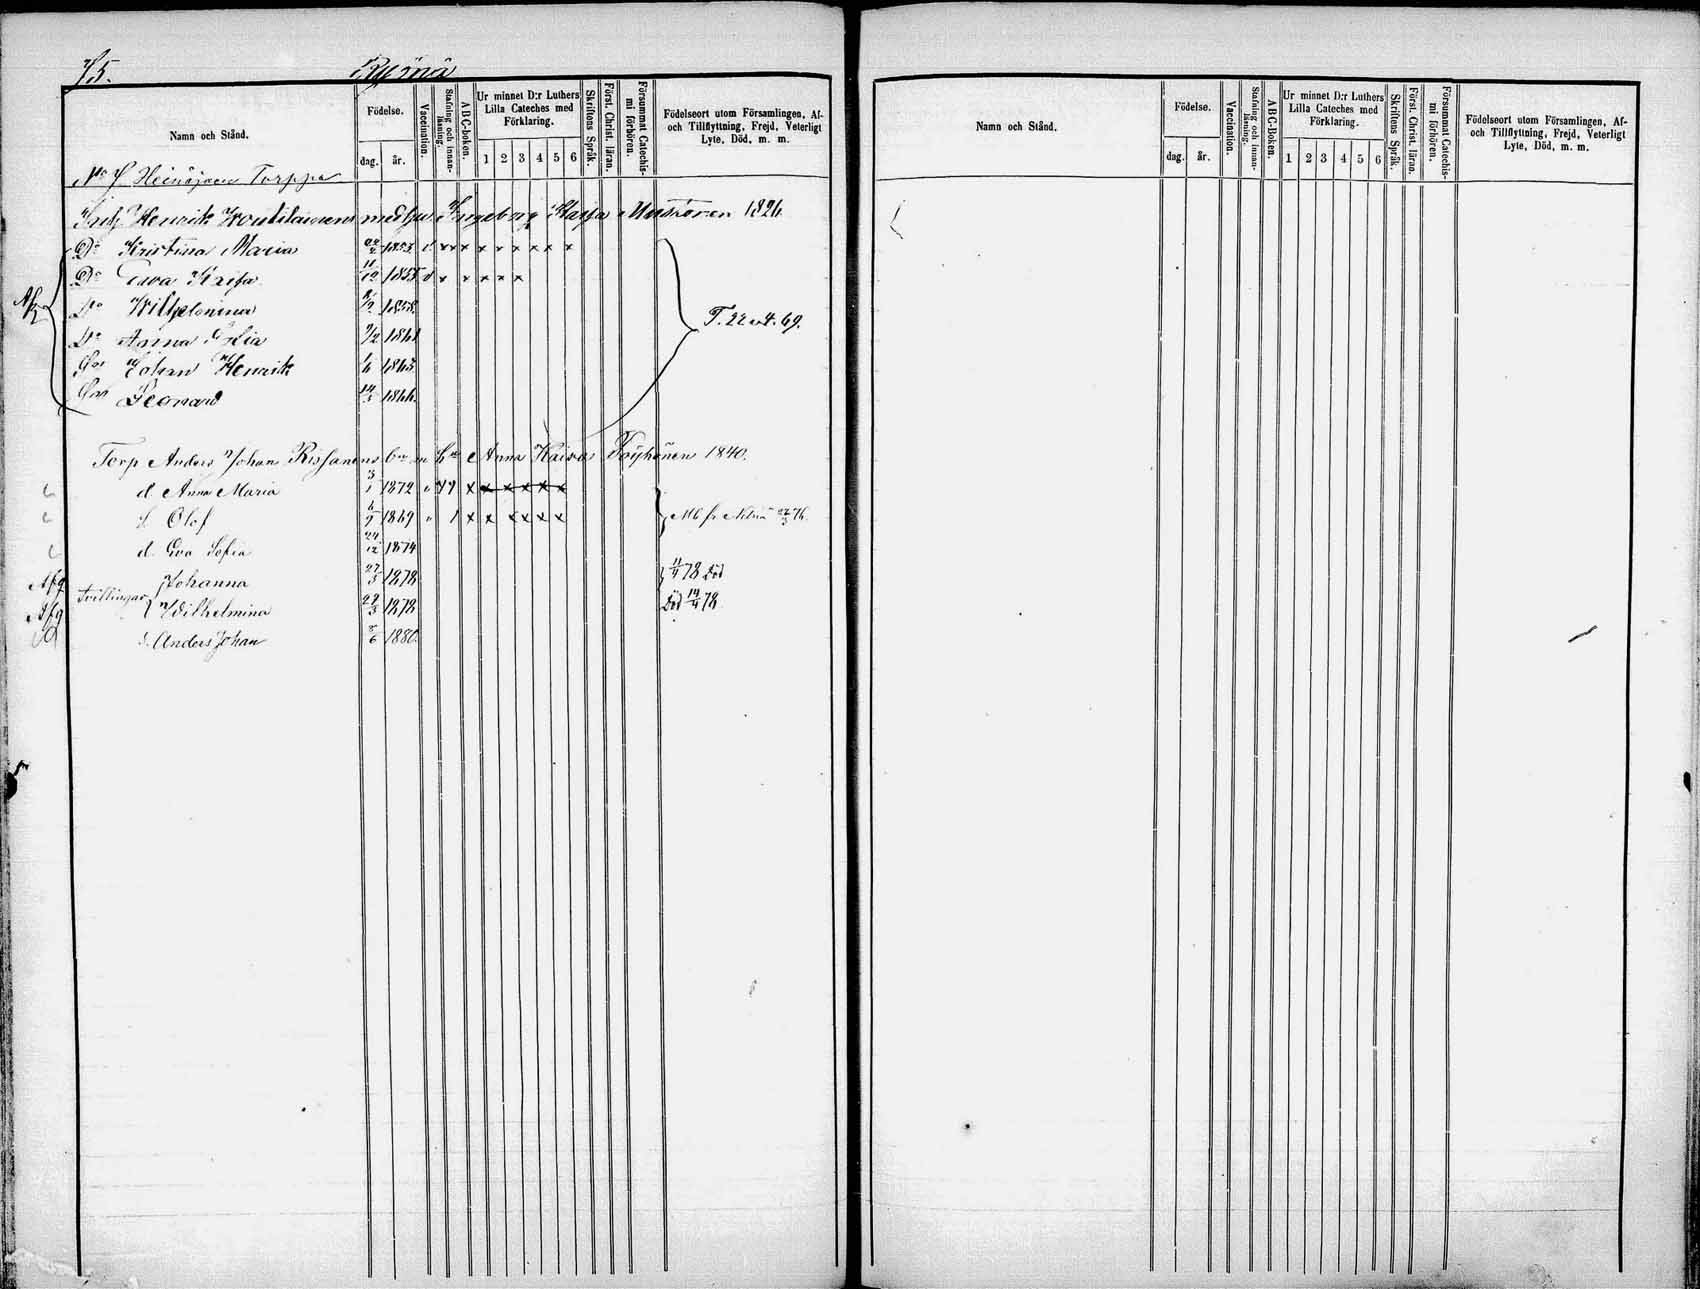 75. Rysmä
Namn och Stånd.
Födelse.
dag. år.
Vaccination.
Stafning och innanläsning.
ABC-boken.
Ur minnet D:r Luthers Lilla Cateches med Förklaring.
1 2 3 4 5 6
Skriftens Språk.
Först. Christ. läran.
Försummat Catechismi förhören.
Födelseort utom Församlingen, Af- och Tillflyttning, Frejd, Veterligt Lyte, Död, m. m.
Torppa
Henrik med hu. Ingeborg Kaisa 1826
Do Kristina Maria 1853 v x x x x x x x x x
Do Kaisa 11/12 1855 v x x x x x
Do Wilhelmina 1858
Do Anna 9/2 1861
Son Johan Henrik 1/6 1863
Son Leonard 14/3 1866
T. 69.
Torp Anders Johan Rissanens Anna Kaisa 1840.
d. Anna Maria 3/1 1872 x x x x x x
s. Olof 6/9 1869 x x x x x x
d. Eva Sofia 24/12 1874
Afg Tvillingar Johanna 27/3 1878 11/4 78 död
Afg Wilhelmina 27/3 1878 död 14/4 78
s. Anders Johan 1880
Namn och Stånd.
Födelse.
dag. år.
Vaccination.
Stafning och innanläsning.
ABC-Boken.
Ur minnet D:r Luthers Lilla Cateches med Förklaring.
1 2 3 4 5 6
Skriftens Språk.
Först. Christ. läran.
Försummat Catechismi förhören.
Födelseort utom Församlingen, Af- och Tillflyttning, Frejd, Veterligt Lyte, Död, m. m.